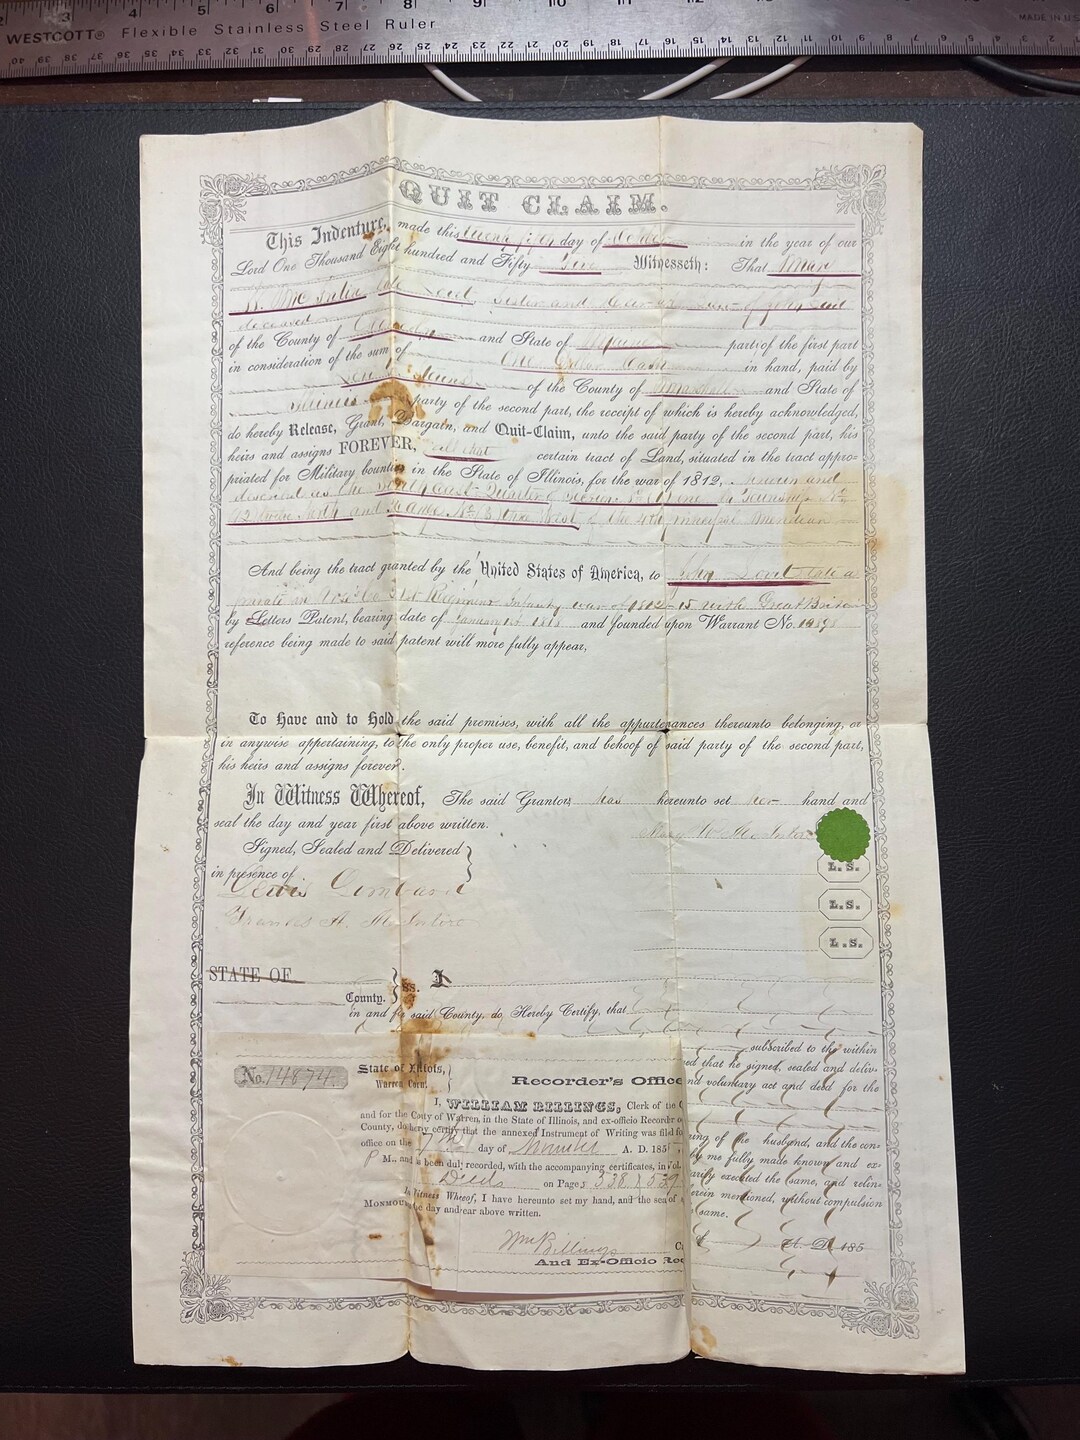 WESTCOTT® Flexible Stainless Steel Ruler
MADE IN U.S.
QUIT CLAIM.
This Indenture, made this twenty fifth day of October in the year of our
Lord One Thousand Eight hundred and Fifty five Witnesseth: That Mary
W. late Lovit, Sister and
deceased
of the County of and State of Maine part of the first part
in consideration of the sum of One Dollar Cash in hand, paid by
of the County of and State of
Illinois party of the second part, the receipt of which is hereby acknowledged,
do hereby Release, Grant, Bargain, and Quit-Claim, unto the said party of the second part, his
heirs and assigns FOREVER, all that certain tract of Land, situated in the tract appro-
priated for Military bounties in the State of Illinois, for the war of 1812, known and
described as the East Quarter of Section No. Nine in Township No.
12 Twelve North and Range No. 3 Three West of the 4th principal Meridian
And being the tract granted by the United States of America, to John Lovit late a
private in Co 21st Regiment Infantry war of 1812-15 with Great Britain
by Letters Patent, bearing date of January 1st 1818 and founded upon Warrant No.
reference being made to said patent will more fully appear,
To Have and to Hold the said premises, with all the appurtenances thereunto belonging, or
in anywise appertaining, to the only proper use, benefit, and behoof of said party of the second part,
his heirs and assigns forever.
In Witness Whereof, The said Grantor has hereunto set her hand and
seal the day and year first above written.
Mary W
Signed, Sealed and Delivered
in presence of
L.S.
Lewis Lombard
L.S.
Frances A. McIntire
L.S.
STATE OF
County. ss. I
in and for said County, do Hereby Certify, that
subscribed to the within
ed that he signed, sealed and deliv-
nd voluntary act and deed for the
ing of the husband, and the con-
by me fully made known and ex-
arily executed the same, and relin-
erein mentioned, without compulsion
same.
A. D. 185
No. 14874
State of
Warren
Recorder's Office
I, WILLIAM BILLINGS, Clerk of the
and for the of Warren, in the State of Illinois, and ex-officio Recorder
County, do certify that the annexed Instrument of Writing was filed
office on the 7th day of November A. D. 185
P M., and been duly recorded, with the accompanying certificates, in
Deeds on Pages 338 &
In Witness Whereof, I have hereunto set my hand, and the seal of
MONMOUTH the day and year above written.
Wm Billings
And Ex-Officio Rec